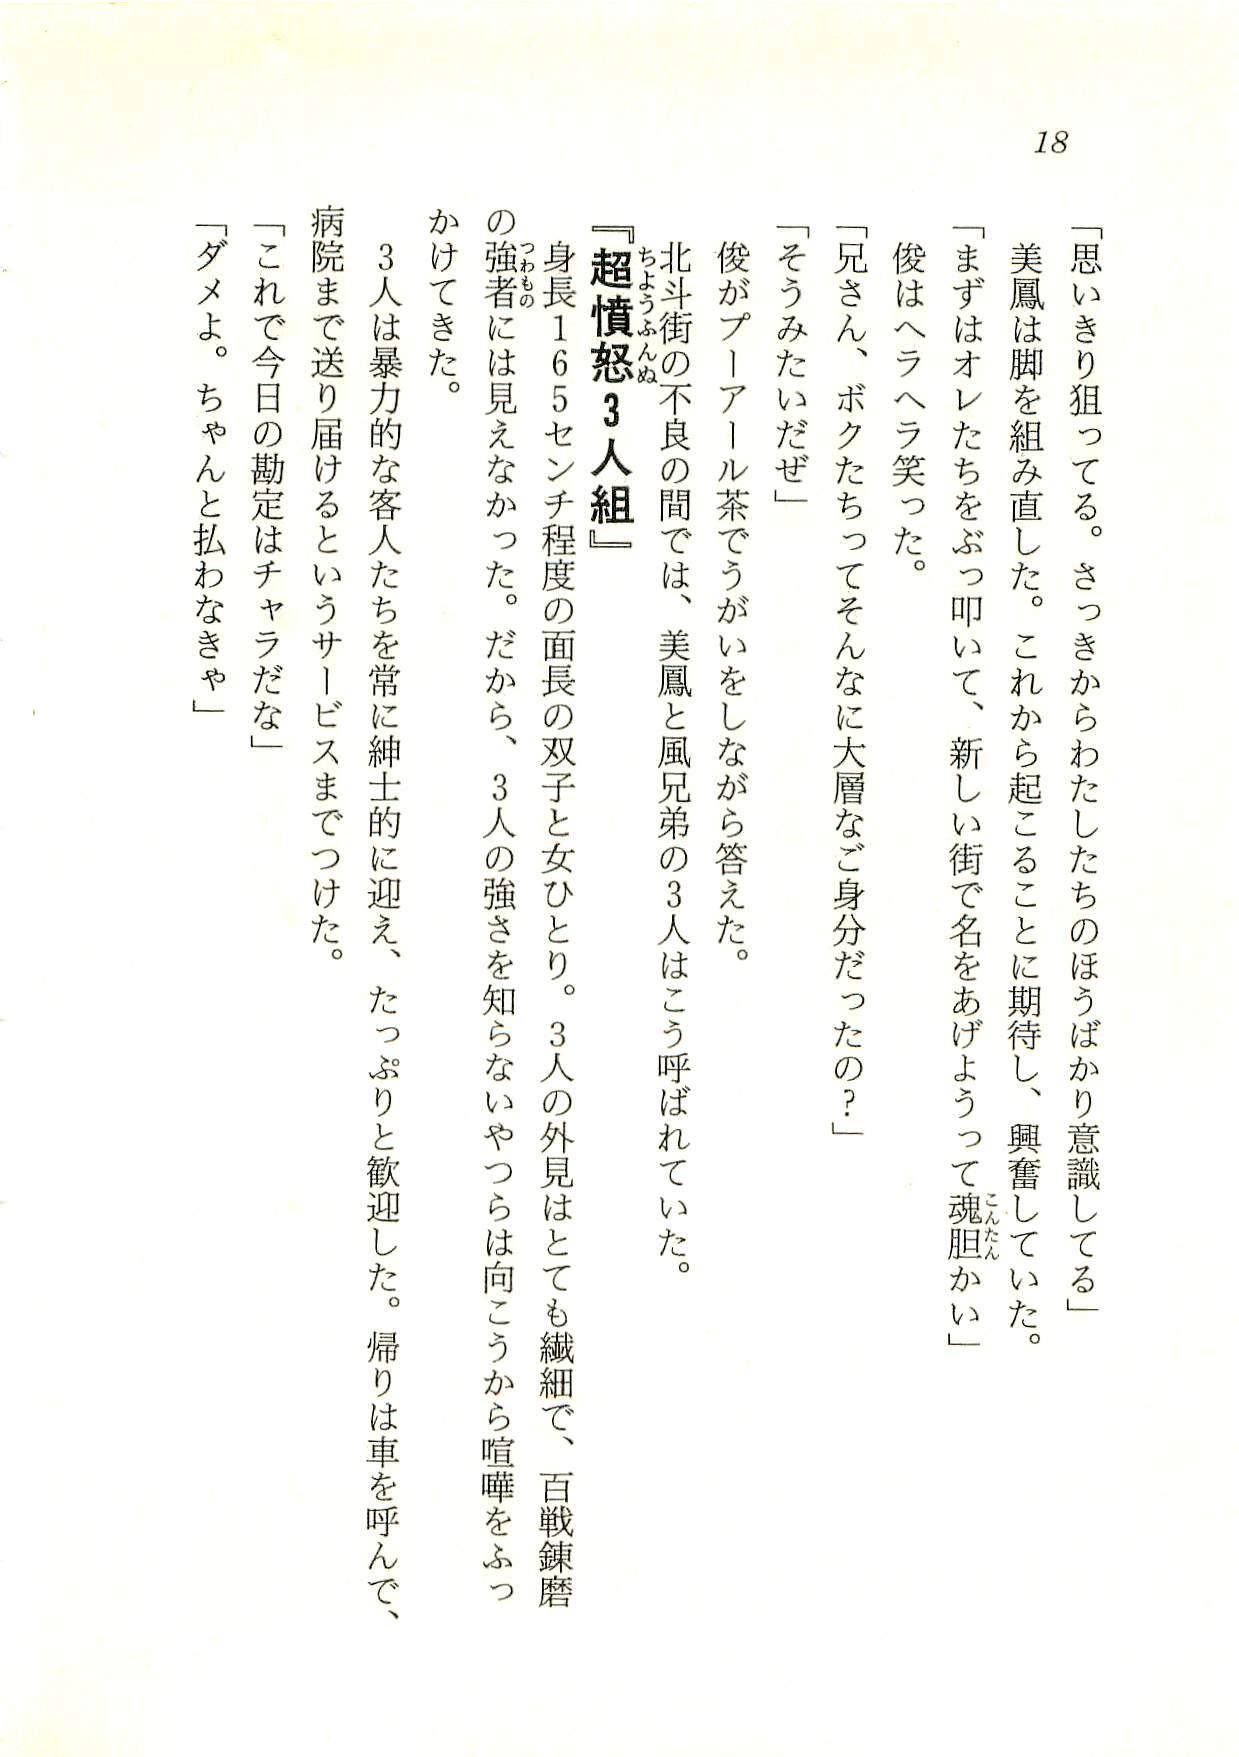 18
「思いきり狙ってる。さっきからわたしたちのほうばかり意識してる」
美鳳は脚を組み直した。これから起こることに期待し、興奮していた。
「まずはオレたちをぶっ叩いて、新しい街で名をあげようって魂胆かい」
こんたん
俊はヘラヘラ笑った。
「兄さん、ボクたちってそんなに大層なご身分だったの？」
「そうみたいだぜ」
俊がプーアール茶でうがいをしながら答えた。
北斗街の不良の間では、美鳳と風兄弟の3人はこう呼ばれていた。
『超憤怒3人組』
ちょうふんぬ
身長165センチ程度の面長の双子と女ひとり。3人の外見はとても繊細で、百戦錬磨
の強者には見えなかった。だから、3人の強さを知らないやつらは向こうから喧嘩をふっ
つわもの
かけてきた。
3人は暴力的な客人たちを常に紳士的に迎え、たっぷりと歓迎した。帰りは車を呼んで、
病院まで送り届けるというサービスまでつけた。
「これで今日の勘定はチャラだな」
「ダメよ。ちゃんと払わなきゃ」